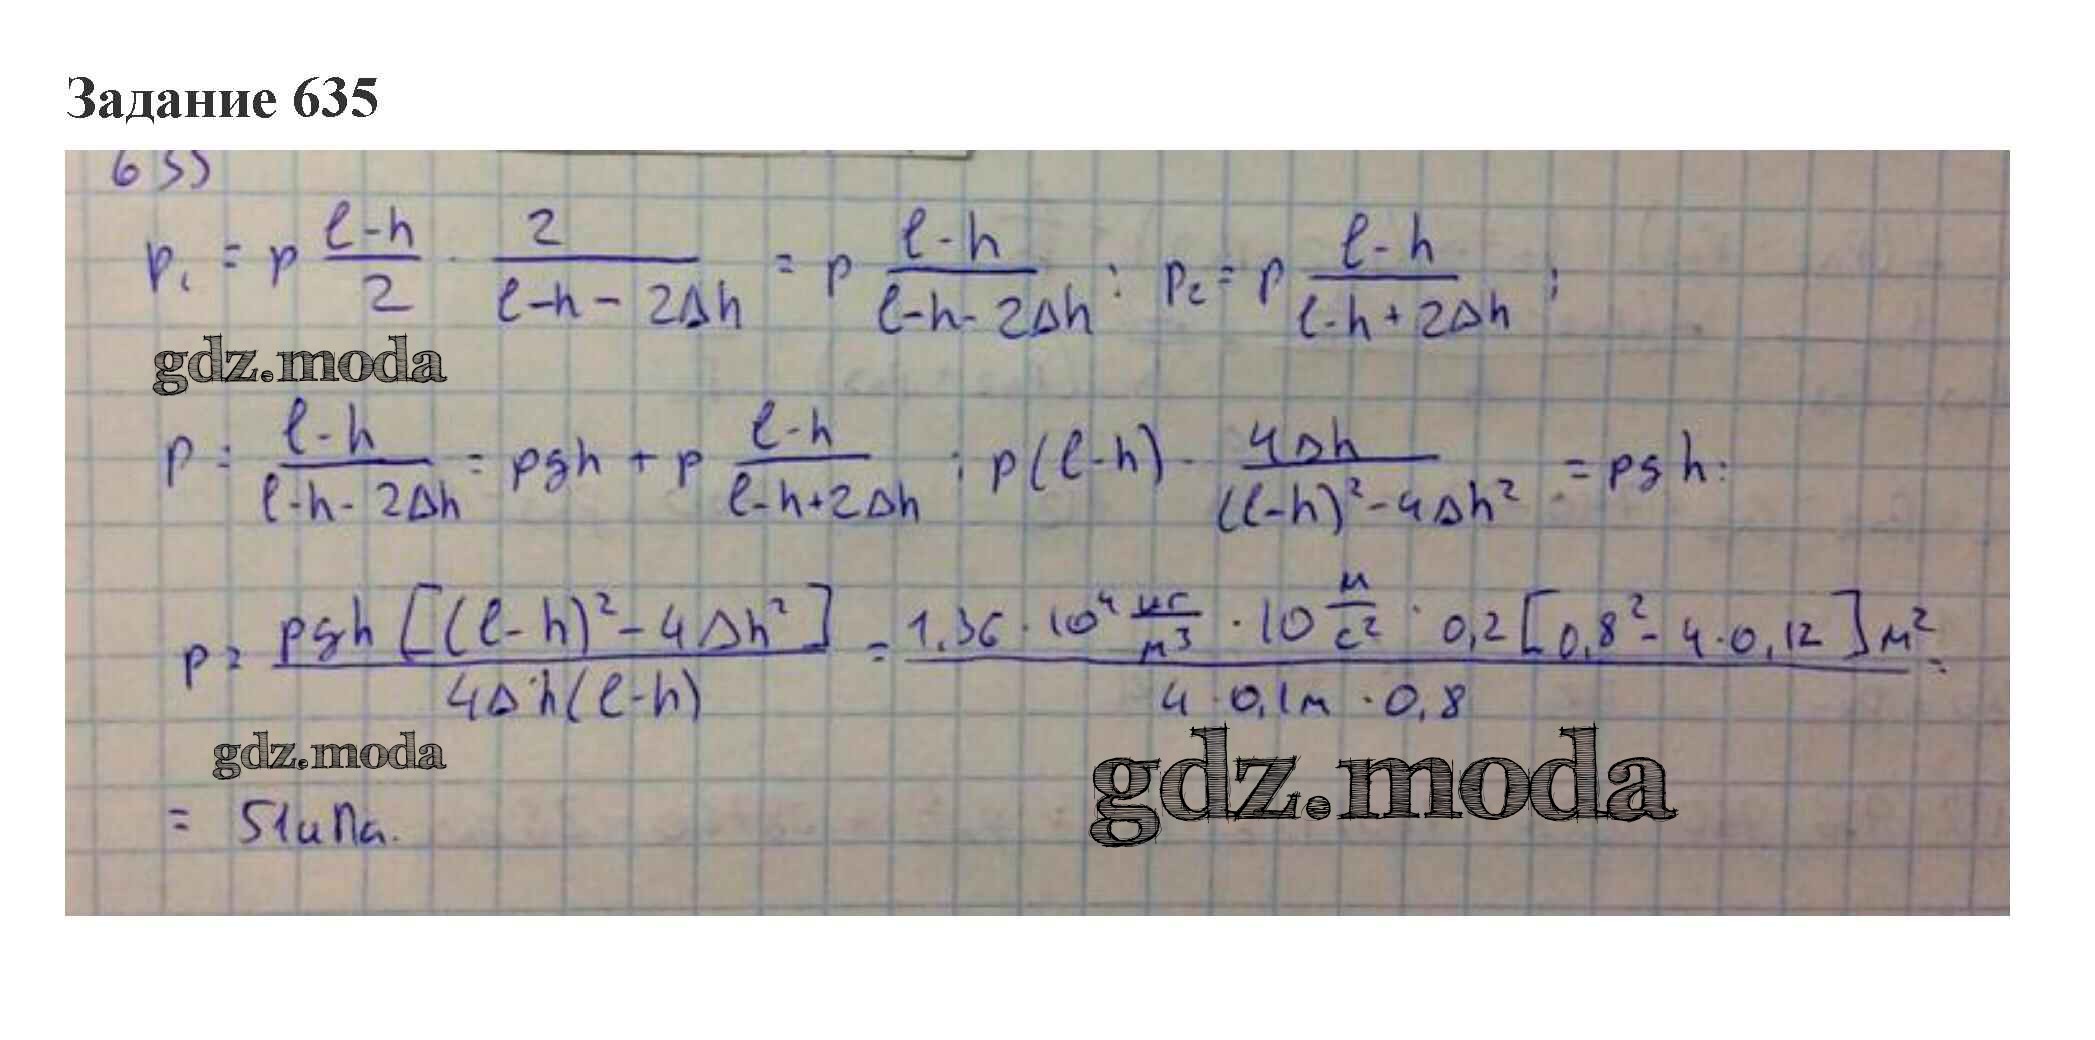 Задание 635
635
p₁ = p (l-h)/2 · 2/(l-h-2Δh) = p (l-h)/(l-h-2Δh) ; p₂ = p (l-h)/(l-h+2Δh) ;
gdz.moda
p = (l-h)/(l-h-2Δh) = ρgh + p (l-h)/(l-h+2Δh) ; p(l-h) · 4Δh/((l-h)²-4Δh²) = ρgh :
p = ρgh[(l-h)²-4Δh²]/(4Δh(l-h)) = 1.36·10⁴ кг/м³ · 10 м/с² · 0,2[0,8²-4·0,12]м²/(4·0,1м·0,8) =
gdz.moda
gdz.moda
= 51кПа.